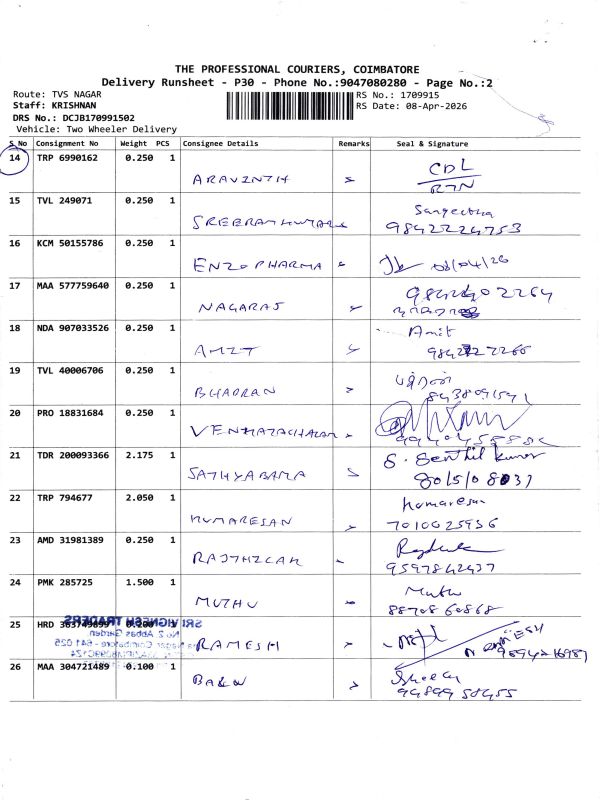 THE PROFESSIONAL COURIERS, COIMBATORE
Delivery Runsheet - P30 - Phone No.:9047080280 - Page No.:2
Route: TVS NAGAR
RS No.: 1709915
Staff: KRISHNAN
RS Date: 08-Apr-2026
DRS No.: DCJB170991502
Vehicle: Two Wheeler Delivery
S No Consignment No Weight PCS Consignee Details Remarks Seal & Signature
14 TRP 6990162 0.250 1
ARAVINTH CDL
RTN
15 TVL 249071 0.250 1
Sangeetha
9842224753
16 KCM 50155786 0.250 1
ENZO PHARMA 08/04/26
17 MAA 577759640 0.250 1
NAGARAJ
18 NDA 907033526 0.250 1
AMIT Amit
19 TVL 40006706 0.250 1
BHADRAN
20 PRO 18831684 0.250 1
VENKATACHALAM
21 TDR 200093366 2.175 1
SATHYABAMA S. Senthil Kumar
22 TRP 794677 2.050 1
KUMARESAN Kumaresan
7010625936
23 AMD 31981389 0.250 1
9597842437
24 PMK 285725 1.500 1
MUTHU Muthu
88708 60868
SRI VIGNESH TRADERS
No.2 Abbas Garden
25 HRD 1
RAMESH
Coimbatore - 641 025
26 MAA 304721489 0.100 1
BABU